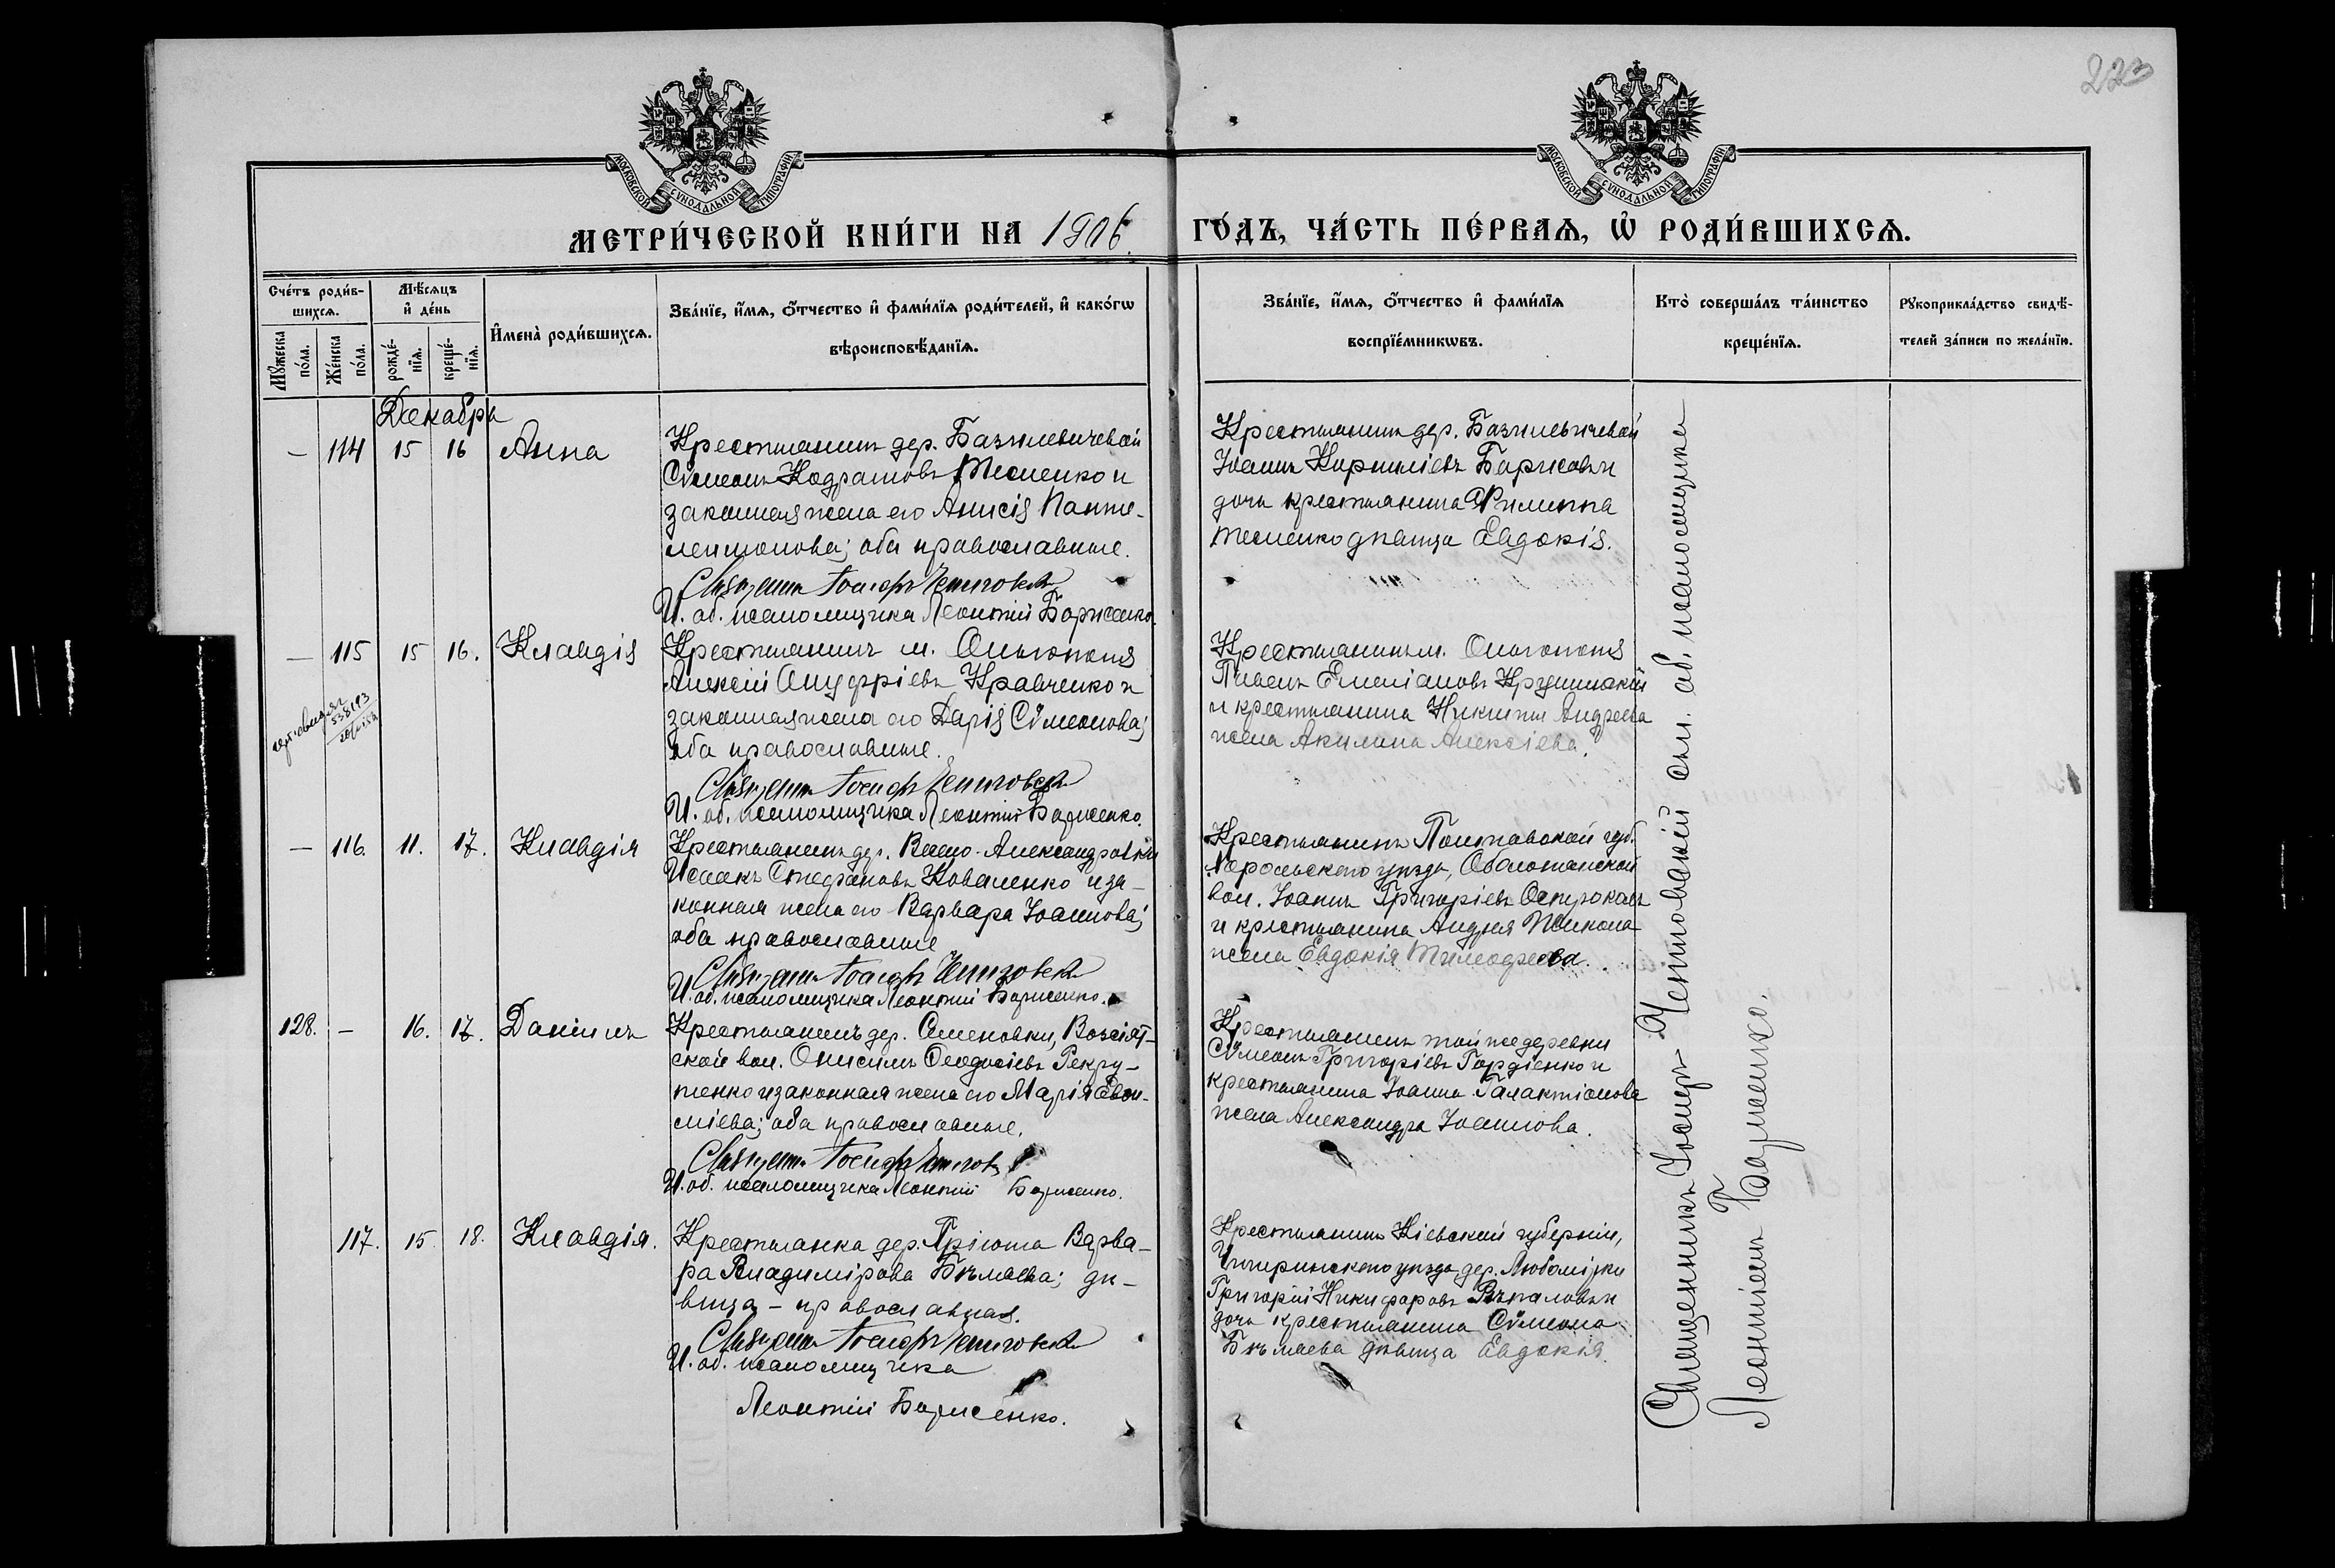 223
МОСКОВСКОЙ СѴНОДАЛЬНОЙ ТИПОГРАФІИ
МОСКОВСКОЙ СѴНОДАЛЬНОЙ ТИПОГРАФІИ
МЕТРИ́ЧЕСКОЙ КНИ́ГИ НА 1906.
ГО́ДЪ, ЧА́СТЬ ПЕ́РВАѦ, Ѡ҆ РОДИ́ВШИХСѦ.
Сче́тъ роди́в-
шихсѧ.
Мꙋ́жеска по́ла.
Же́нска по́ла.
Мѣ́сѧцъ
и҆ де́нь
рожде́-
нїѧ.
креще́-
нїѧ.
И҆мена̀ роди́вшихсѧ.
Зва́нїе, и҆́мѧ, ѻ҆́тчество и҆ фами́лїѧ роди́телей, и҆ како́гѡ
вѣроисповѣ́данїѧ.
Зва́нїе, и҆́мѧ, ѻ҆́тчество и҆ фами́лїѧ
воспрїе́мникѡвъ.
Кто̀ соверша́лъ та́инство
креще́нїѧ.
Рꙋкоприкла́дство свидѣ́-
телей за́писи по жела́нїю.
Декабря
— 114 15 16 Анна
Крестьянинъ дер. Базилевичевой
Сѵмеонъ Кодратовъ Тесленко и
законная жена его Анисія Панте-
леимонова; оба православные.
Священникъ Іосифъ
И. об. псаломщика Леонтій Борисенко.
Крестьянинъ дер. Базилевичевой
Іоаннъ Корниліевъ Борисовъ и
дочь крестьянина Филиппа
Тесленко дѣвица Евдокія.
— 115 15 16. Клавдія
Крестьянинъ м. Ольгополя
Алексій Онуфріевъ Кравченко и
законная жена его Дарія Сѵмеонова;
оба православные.
Священникъ Іосифъ
И. об. псаломщика Леонтій Борисенко.
Крестьянинъ м. Ольгополя
Павелъ Емеліановъ
и крестьянина Никиты Андреева
жена Акилина Алексіева.
— 116. 11. 17. Клавдія
Крестьянинъ дер. Александровки
Исаакъ Стефановъ Коваленко и за-
конная жена его Варвара Іоаннова;
оба православные
Священникъ Іосифъ
И. об. псаломщика Леонтій Борисенко.
Крестьянинъ Полтавской губ.
Хорольскаго уѣзда, Оболонской
вол. Іоаннъ Григоріевъ
и крестьянина Андрея
жена Евдокія Тимофеева.
128. — 16. 17. Даніилъ
Крестьянинъ дер. Семеновки, Возсіят-
ской вол. Онисимъ Ѳеодосіевъ Рекру-
тенко и законная жена его Марія Евѳи-
міева; оба православные.
Священникъ Іосифъ
И. об. псаломщика Леонтій Борисенко.
Крестьянинъ той же деревни
Сѵмеонъ Григоріевъ Гордіенко и
крестьянина Іоанна Галактіонова
жена Александра Іоаннова.
117. 15. 18. Клавдія.
Крестьянка дер. Пріюта Варва-
ра Владимірова Бѣляева; дѣ-
вица — православная.
Священникъ Іосифъ
И. об. псаломщика
Леонтій Борисенко.
Крестьянинъ Кіевской губерніи,
Чигиринскаго уѣзда, дер. Любомірки
Григорій Никифоровъ и
дочь крестьянина Сѵмеона
Бѣляева дѣвица Евдокія.
Священникъ Іосифъ съ и. об. псаломщика
Леонтіемъ Борисенко.